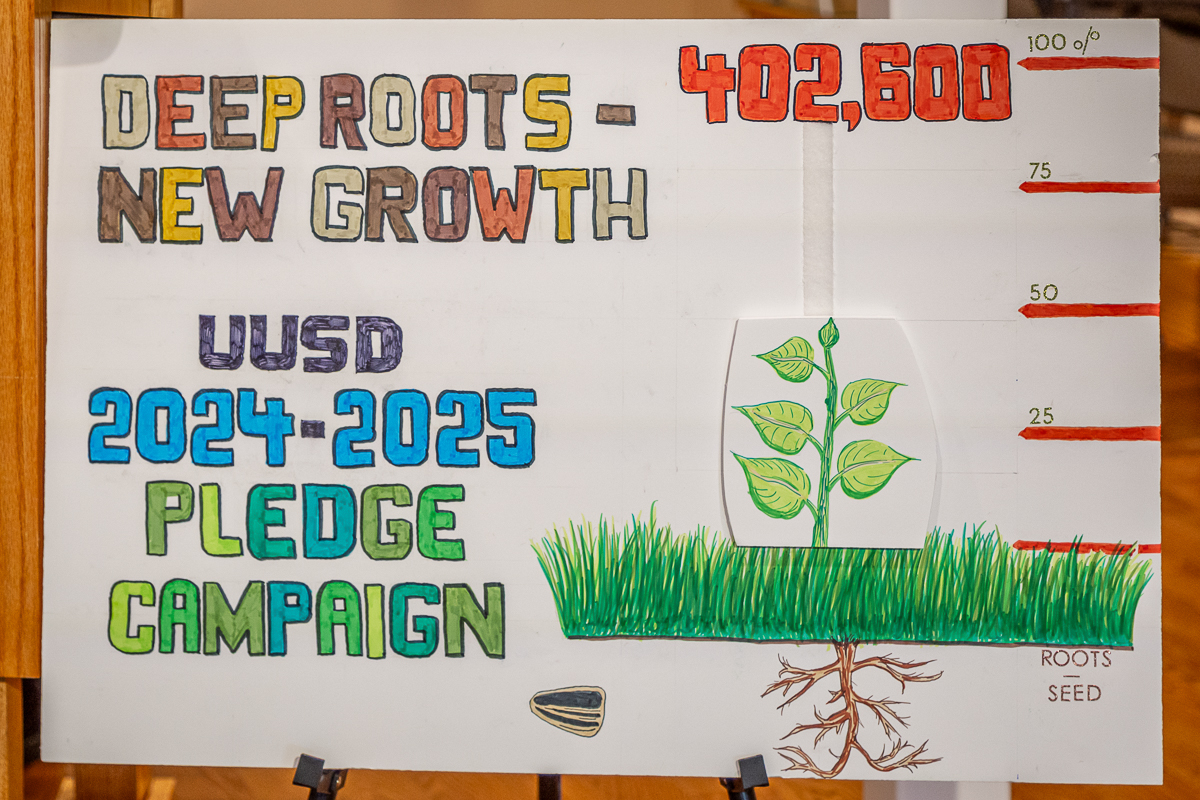 DEEP ROOTS -
NEW GROWTH
402,600
100 %
75
50
25
UUSD
2024-2025
PLEDGE
CAMPAIGN
ROOTS
-
SEED